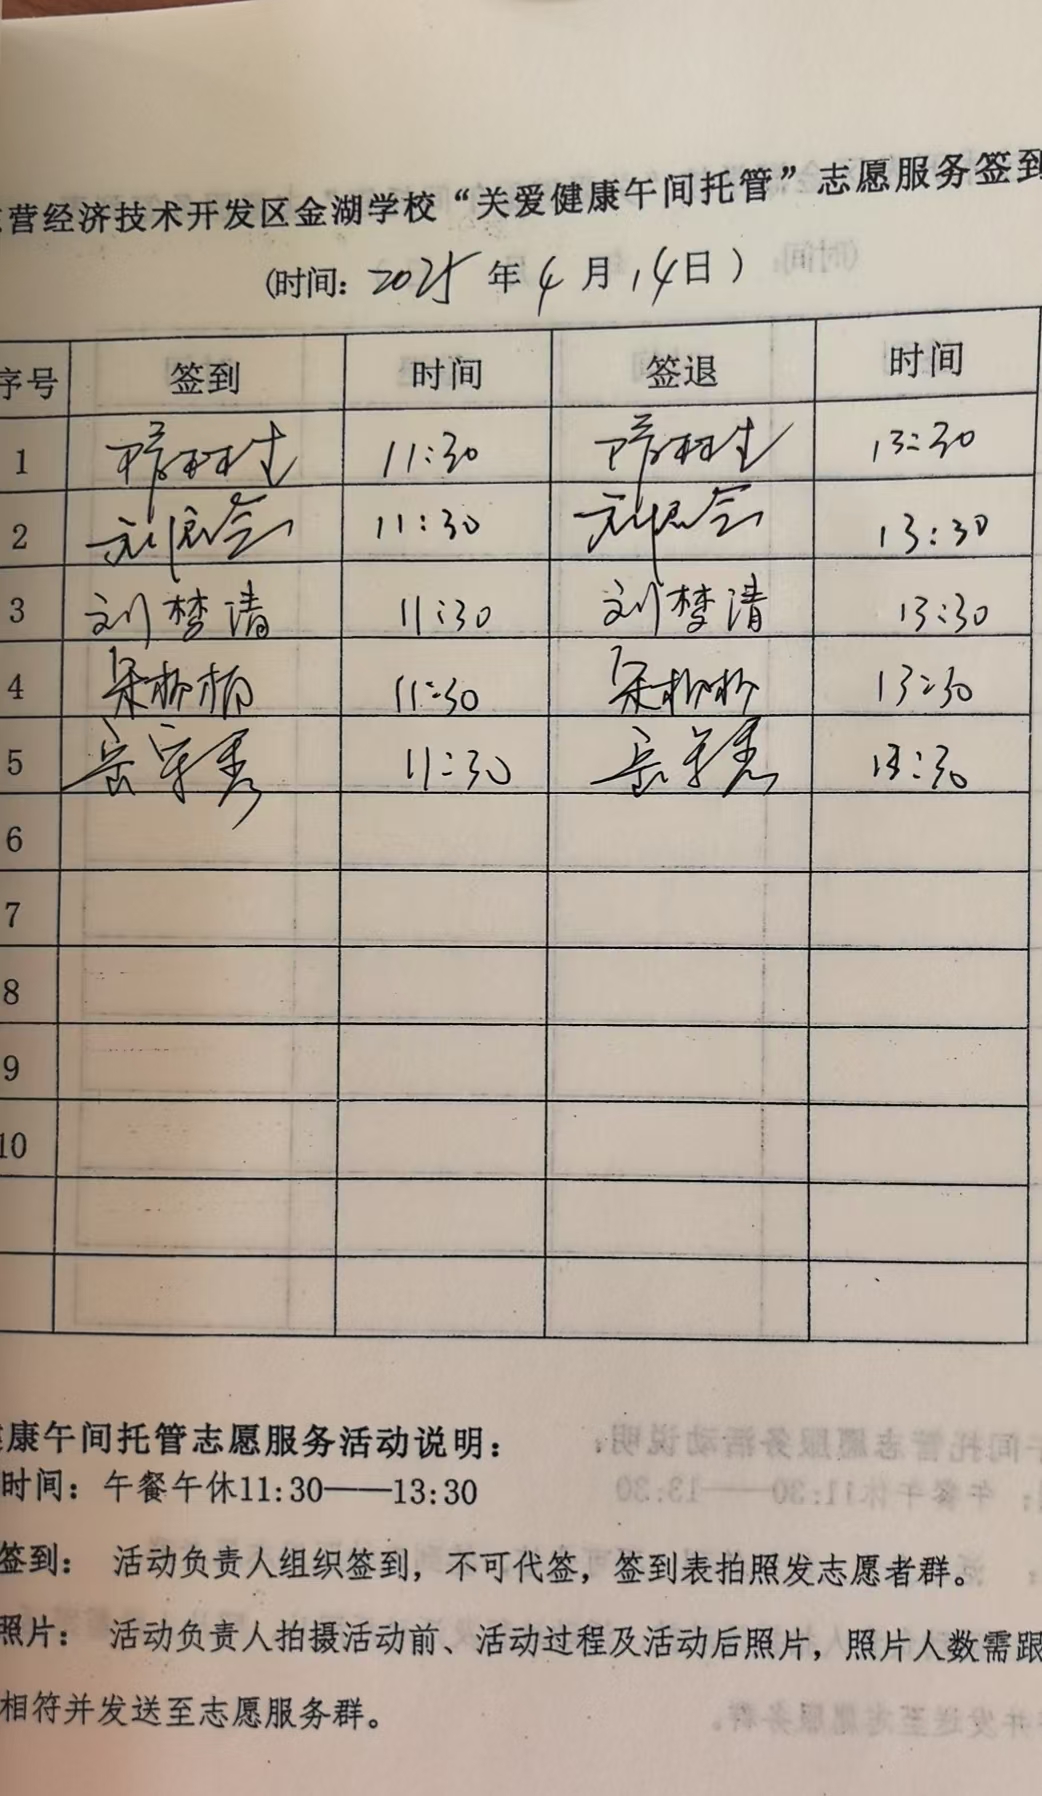 营经济技术开发区金湖学校“关爱健康午间托管”志愿服务签到
(时间: 2025 年 4 月 14 日 )
序号 签到 时间 签退 时间
1 11:30 13:30
2 11:30 13:30
3 刘梦清 11:30 刘梦清 13:30
4 11:30 13:30
5 11:30 13:30
6
7
8
9
10
康午间托管志愿服务活动说明:
时间: 午餐午休11:30——13:30
签到: 活动负责人组织签到, 不可代签, 签到表拍照发志愿者群。
照片: 活动负责人拍摄活动前、活动过程及活动后照片, 照片人数需跟
相符并发送至志愿服务群。